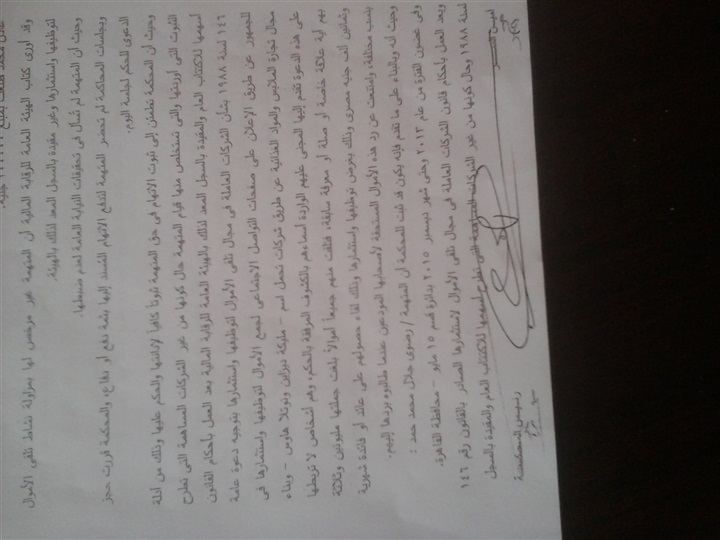 عادل محمد طلعت بمبلغ جنيه.
وقد أورى كتاب الهيئة العامة للرقابة المالية أن المتهمة غير مرخص لها بمزاولة نشاط تلقى الأموال
لتوظيفها واستثمارها وغير مقيدة بالسجل المعد لذلك بالهيئة.
وحيث أن المتهمة لم تُسأل فى تحقيقات النيابة العامة لعدم ضبطها.
وبجلسات المحاكمة لم تحضر المتهمة لتدفع الاتهام المُسند إليها بثمة دفع أو دفاع، والمحكمة قررت حجز
الدعوى للحكم لجلسة اليوم.
وحيث أن المحكمة تطمئن إلى ثبوت الاتهام فى حق المتهمة ثبوتاً كافياً لإدانتها والحكم عليها وذلك من أدلة
الثبوت التى أوردتها والتى تستخلص منها قيام المتهمة حال كونها من غير الشركات المساهمة التى تطرح
أسهمها للاكتتاب العام والمقيدة بالسجل المعد لذلك بالهيئة العامة للرقابة المالية بعد العمل بأحكام القانون
١٤٦ لسنة ١٩٨٨ بشأن الشركات العاملة فى مجال تلقى الأموال لتوظيفها واستثمارها بتوجيه دعوة عامة
للجمهور عن طريق الإعلان على صفحات التواصل الاجتماعى لجمع الأموال لتوظيفها واستثمارها فى
مجال تجارة الملابس والمواد الغذائية عن طريق شركات تحمل اسم – مليكة ديزاين ونوتلا هاوس – وبناء
على هذه الدعوة تقدم إليها المجنى عليهم الواردة أسماءهم بالكشوف المرفقة بالحكم، وهم أشخاص لا تربطها
بهم أية علاقة خاصة أو صلة أو معرفة سابقة، فتلقت منهم جميعاً أموالاً بلغت جملتها مليونين وثلاثة
وثمانين ألف جنيه مصرى وذلك بغرض توظيفها واستثمارها وذلك لقاء حصولهم على عائد أو فائدة شهرية
بنسب مختلفة، وامتنعت عن رد هذه الأموال المستحقة لأصحابها المودعين عندما طالبوه بردها إليهم.
وحيث أنه وبالبناء على ما تقدم فإنه يكون قد ثبت للمحكمة أن المتهمة / رضوى جلال محمد حمد :
وفى غضون الفترة من عام ٢٠١٣ وحتى شهر ديسمبر ٢٠١٥ بدائرة قسم ١٥ مايو – محافظة القاهرة.
وبعد العمل بأحكام قانون الشركات العاملة فى مجال تلقى الأموال لاستثمارها الصادر بالقانون رقم ١٤٦
لسنة ١٩٨٨ وحال كونها من غير الشركات المساهمة التى تطرح أسهمها للاكتتاب العام والمقيدة بالسجل
أمين السر
رئيس المحكمة